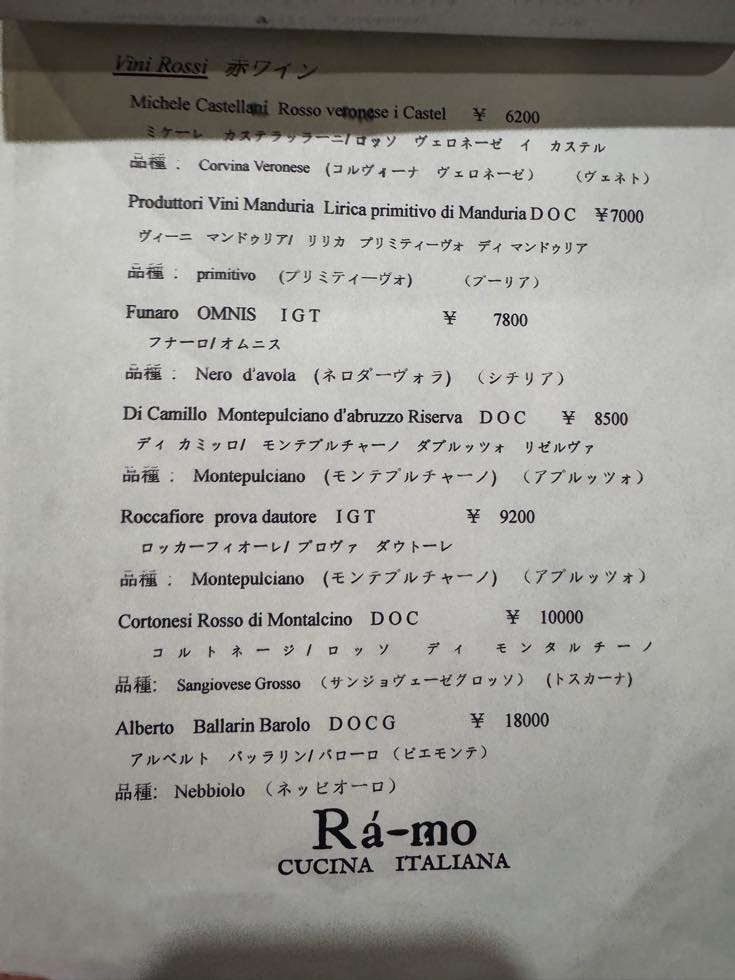 Vini Rossi 赤ワイン
Michele Castellani Rosso veronese i Castel ¥ 6200
ミケーレ カステラッラーニ/ロッソ ヴェロネーゼ イ カステル
品種： Corvina Veronese (コルヴィーナ ヴェロネーゼ) (ヴェネト)
Produttori Vini Manduria Lirica primitivo di Manduria DOC ¥7000
ヴィーニ マンドゥリア/ リリカ プリミティーヴォ ディ マンドゥリア
品種： primitivo (プリミティーヴォ) (プーリア)
Funaro OMNIS IGT ¥ 7800
フナーロ/オムニス
品種： Nero d'avola (ネロダーヴォラ) (シチリア)
Di Camillo Montepulciano d'abruzzo Riserva DOC ¥ 8500
ディ カミッロ/ モンテプルチャーノ ダブルッツォ リゼルヴァ
品種： Montepulciano (モンテプルチャーノ) (アブルッツォ)
Roccafiore prova dautore IGT ¥ 9200
ロッカーフィオーレ/プロヴァ ダウトーレ
品種： Montepulciano (モンテプルチャーノ) (アブルッツォ)
Cortonesi Rosso di Montalcino DOC ¥ 10000
コルトネージ/ロッソ ディ モンタルチーノ
品種: Sangiovese Grosso (サンジョヴェーゼグロッソ) (トスカーナ)
Alberto Ballarin Barolo DOCG ¥ 18000
アルベルト バッラリン/バローロ (ピエモンテ)
品種: Nebbiolo (ネッビオーロ)
Rá-mo
CUCINA ITALIANA